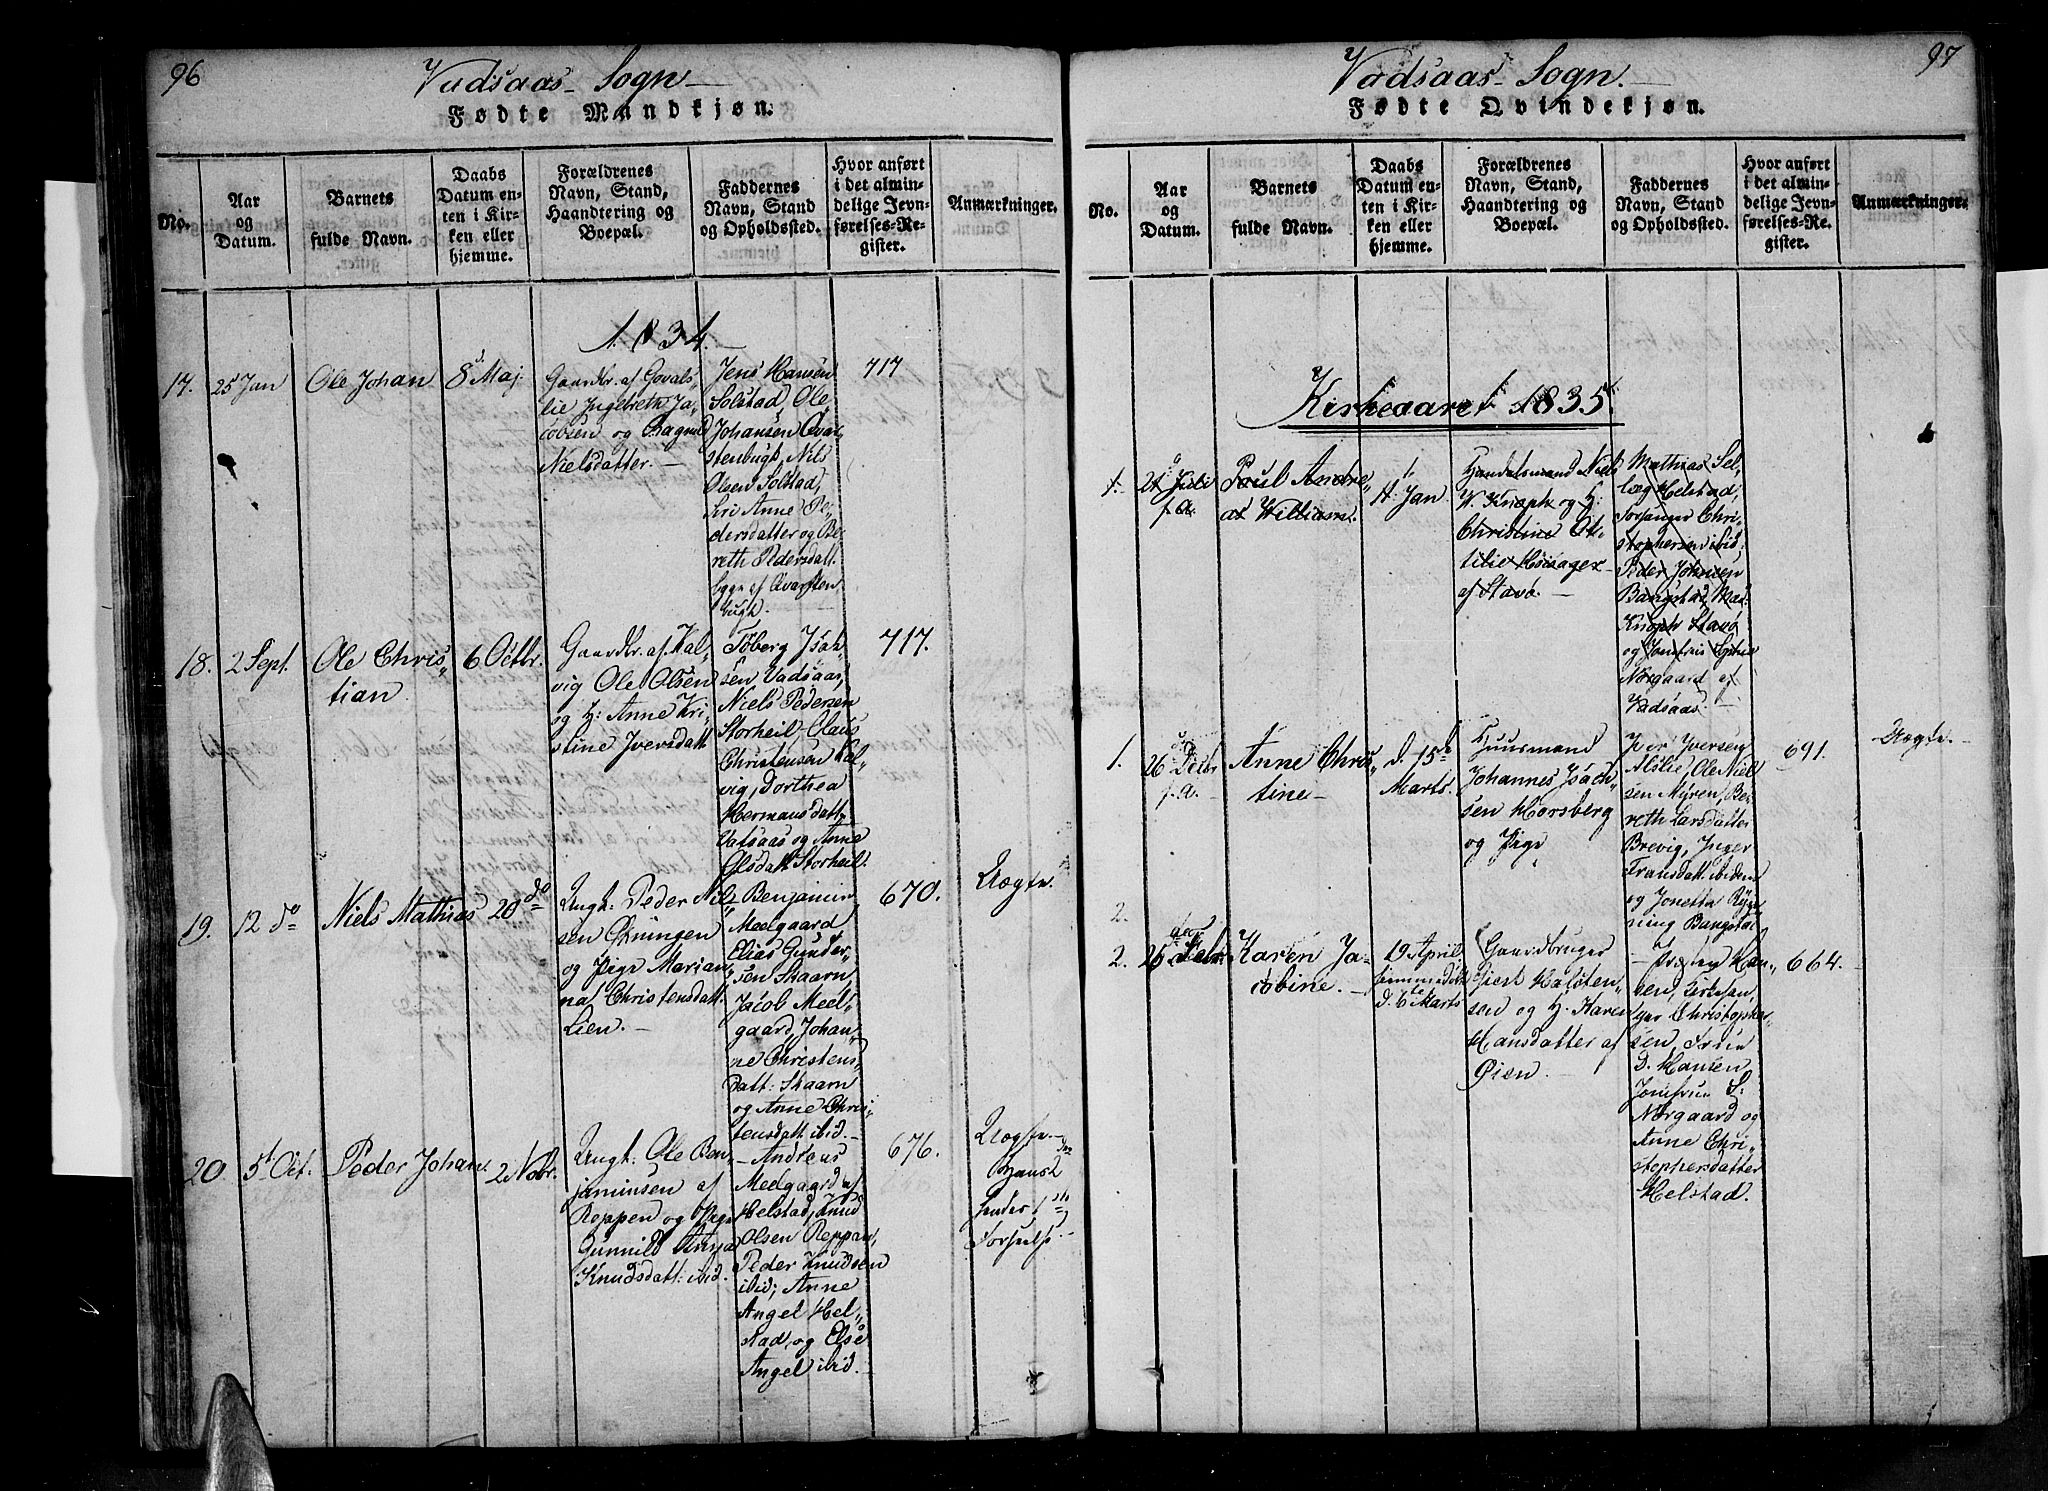 96
Vadsaas Sogn
Fødte Mandkjøn.
No.
Aar
og
Datum.
Barnets
fulde Navn.
Daabs
Datum en-
ten i Kir-
ken eller
hjemme.
Forældrenes
Navn, Stand,
Haandtering og
Boepæl.
Faddernes
Navn, Stand
og Opholdssted.
Hvor anført
i det almin-
delige Jevn-
førelses-Re-
gister.
Anmærkninger.
1834.
17.
25 Jan
Ole Johan
8 Maj.
Gaardbr. af Govals„
lie Ingebreth Ja„
cobsen og Ragnild
Nielsdatter.
Jens Hansen
Solstad, Ole
Johansen Qvar„
stenbugt, Nils
Olsen Solstad,
Anne Pe„
dersdatter og Be„
reth Pedersdatt.
begge af Qvarsten
bugt.
717
18.
2 Sept.
Ole Chris„
tian
6 Octbr.
Gaardbr. af Kal„
vig Ole Olsen
og H: Anne Kri„
stine Iversdatt
Toberg Isak„
sen Vadsaas,
Niels Pedersen
Storheil Olaus
Christensen Kal„
vig, Dorthea
Hermansdatt„
Vatsaas og Anne
Olsdatt Storheil.
717.
19.
12 do
Niels Mathias
20 do
Ungk: Peder Nil„
sen Qvningen
og Pige Marian„
na Christensdatt.
Lien.
Benjamin
Meelgaard
Elias Gunder„
sen Skaarn
Jacob Meel„
gaard, Johan„
ne Christens„
Datt: Skaarn
og Anne Chris„
tensdatt ibid.
670.
Uægte.
20
5t Oct.
Peder Johan
2 Nobr.
Ungk: Ole Ben„
jaminsen af
Reppen og Pige
Gunnild Anna
Knudsdatt: ibid.
Andreas
Meelgaard af
Helstad, Knud
Olsen Reppan,
Peder Knudsen
ibid; Anne
Angel Hel„
stad, og Else
Angel ibid.
676.
Uægte.
97
Vadsaas Sogn.
Fødte Qvindekjøn.
No.
Aar
og
Datum.
Barnets
fulde Navn.
Daabs
Datum en-
ten i Kir-
ken eller
hjemme.
Forældrenes
Navn, Stand,
Haandtering og
Boepæl.
Faddernes
Navn, Stand
og Opholdssted.
Hvor anført
i det almin-
delige Jevn-
førelses-Re-
gister.
Anmærkninger.
Kirkeaaret 1835.
1.
21 Juli
f. A.
Paul Andre„
as William.
11. Jan
Handelsmand Niels
W. Knoph og H:
Christine Ot„
tilie Hoisager
af Stavø.
Mathias Sel„
læg Helstad,
Torfanger Chri„
stophersen ibid:
Peder Johnsen
Bangstad, Mad:
Knoph Stavø
og Jomfrue Sophie
Nørgaard af
Vadsaas.
1.
26 Debr
f. A.
Anne Chris„
tine
d. 15de
Marts.
Huusmand
Johannes Isach„
sen Horsberg
og Pige
Iver Iversen
Alslie, Ole Niel
sen Myren, Be„
reth Larsdatter
Brevig, Inger
Fransdatt ibidem
og Jonetta Ryg„
ning Bangstad
691.
Uægte.
2.
2.
25 Febr
Karen Ja„
cobine.
19 April
hjemmedøbt
d. 6te Marts
Gaardbruger
Giert Halsten„
sen og H. Karen
Hansdatter af
Øien
Han„
sen,
Christopher„
sen, Frue
D. Hansen
Jomfrue S:
Nørgaard og
Anne Chri„
stophersdatter
Helstad.
664.